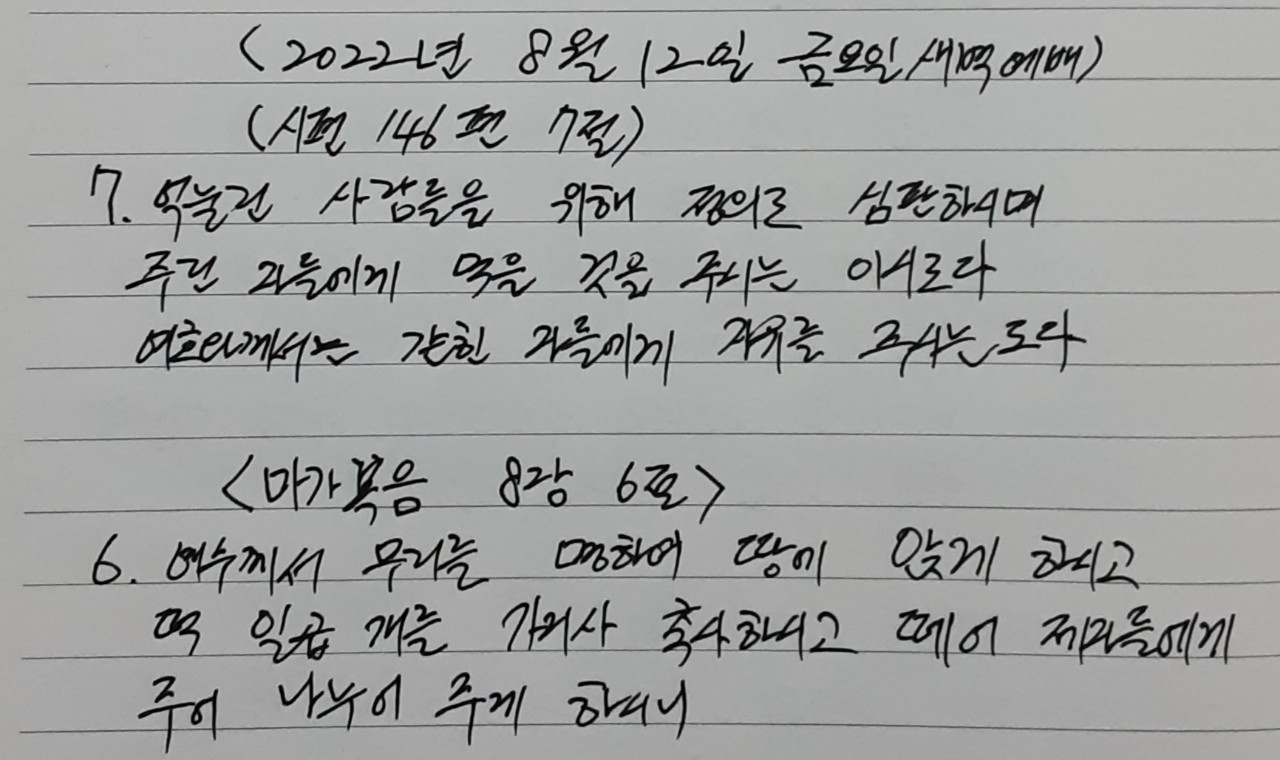 (2022년 8월 12일 금요일 새벽예배)
(시편 146편 7절)
7. 억눌린 사람들을 위해 정의로 심판하시며
주린 자들에게 먹을 것을 주시는 이시로다
여호와께서는 갇힌 자들에게 자유를 주시는도다
<마가복음 8장 6절>
6. 예수께서 무리를 명하여 땅에 앉게 하시고
떡 일곱 개를 가지사 축사하시고 떼어 제자들에게
주어 나누어 주게 하시니